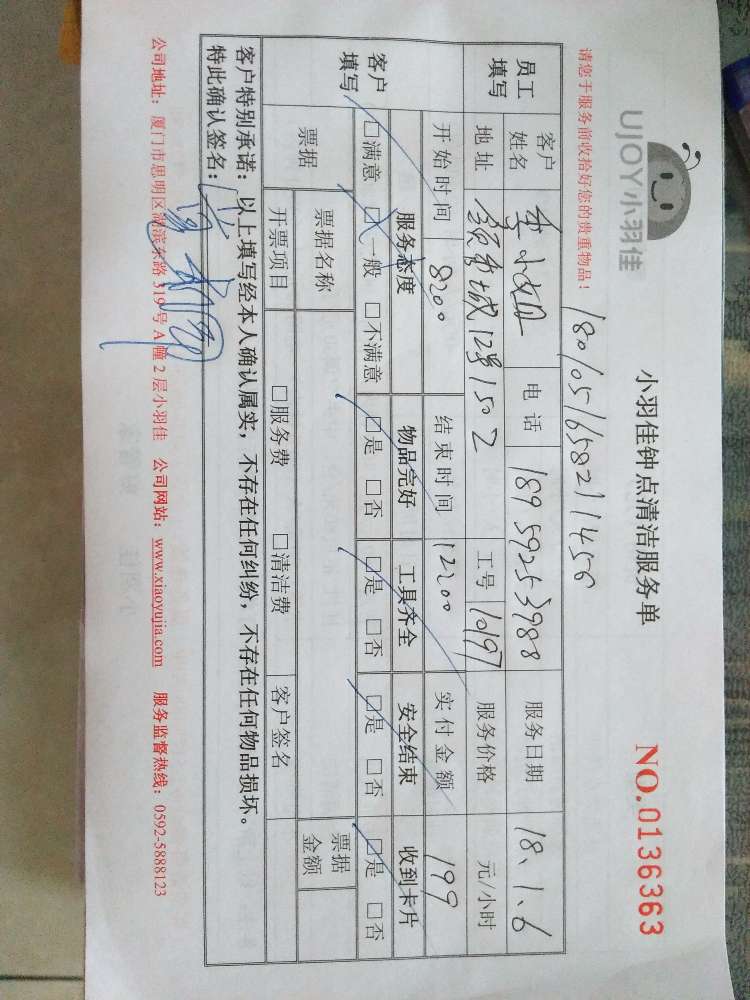 UJOY小羽佳
小羽佳钟点清洁服务单
NO.0136363
请您于服务前收拾好您的贵重物品！
180105165821456
员工填写
客户姓名 李小姐 电话 18959253988 服务日期 18、1、6
地址 12号1502 工号 10197 服务价格 元/小时
开始时间 8:00 结束时间 12:00 实付金额 199
客户填写
服务态度 物品完好 工具齐全 安全结束 收到卡片
□满意 □一般 □不满意 □是 □否 □是 □否 □是 □否 □是 □否
票据 票据名称 票据金额
开票项目 □服务费 □清洁费 客户签名
客户特别承诺：以上填写经本人确认属实，不存在任何纠纷，不存在任何物品损坏。
特此确认签名：
公司地址：厦门市思明区湖滨东路319号A幢2层小羽佳 公司网站：www.xiaoyujia.com 服务监督热线：0592-5888123